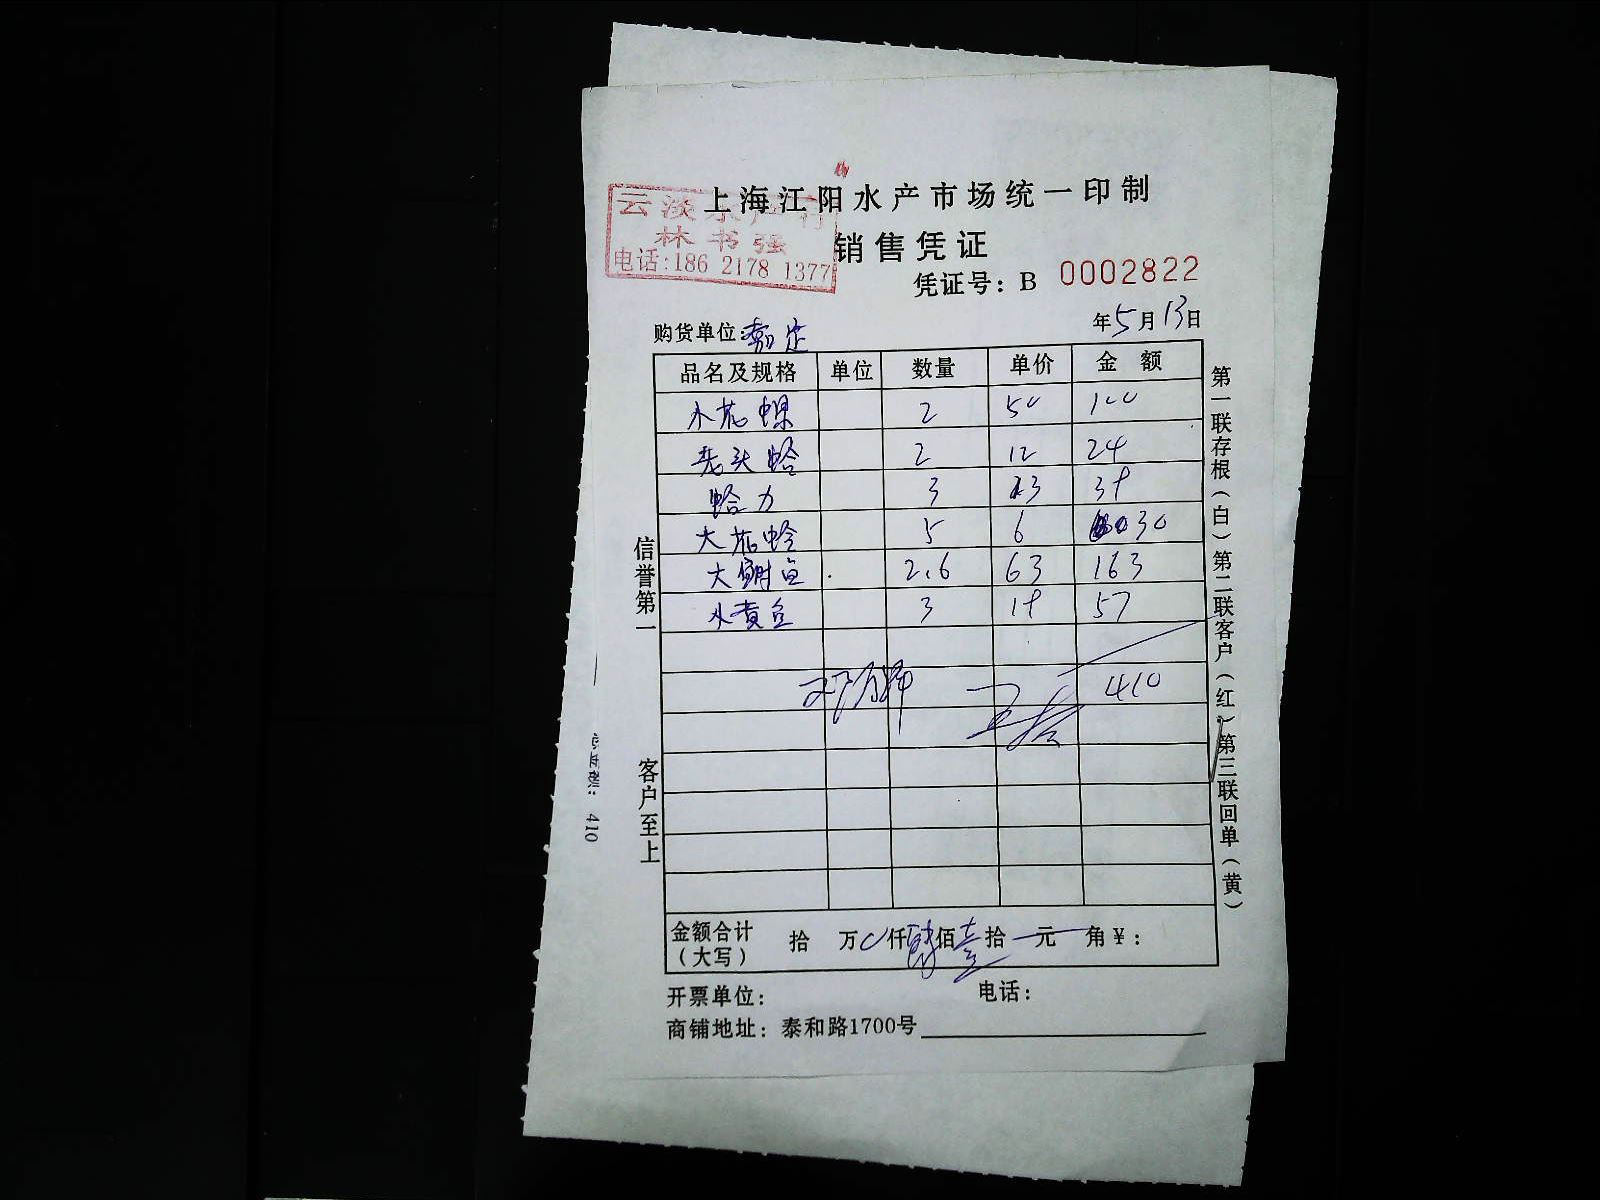 上海江阳水产市场统一印制
云淡水产行
林书强
电话:186 2178 1377
销售凭证
凭证号：B 0002822
购货单位:嘉定
年5月13日
品名及规格 单位 数量 单价 金额
水花螺 2 50 100
老头蛤 2 12 24
蛤力 3 13 39
大花蛤 5 6 30
大鲥鱼 2.6 63 163
小黄鱼 3 19 57
410
金额合计（大写） 拾 万 0仟肆佰壹拾 元 角¥：
开票单位： 电话：
商铺地址：泰和路1700号
信誉第一
客户至上
第一联存根（白）第二联客户（红）第三联回单（黄）
总金额：410